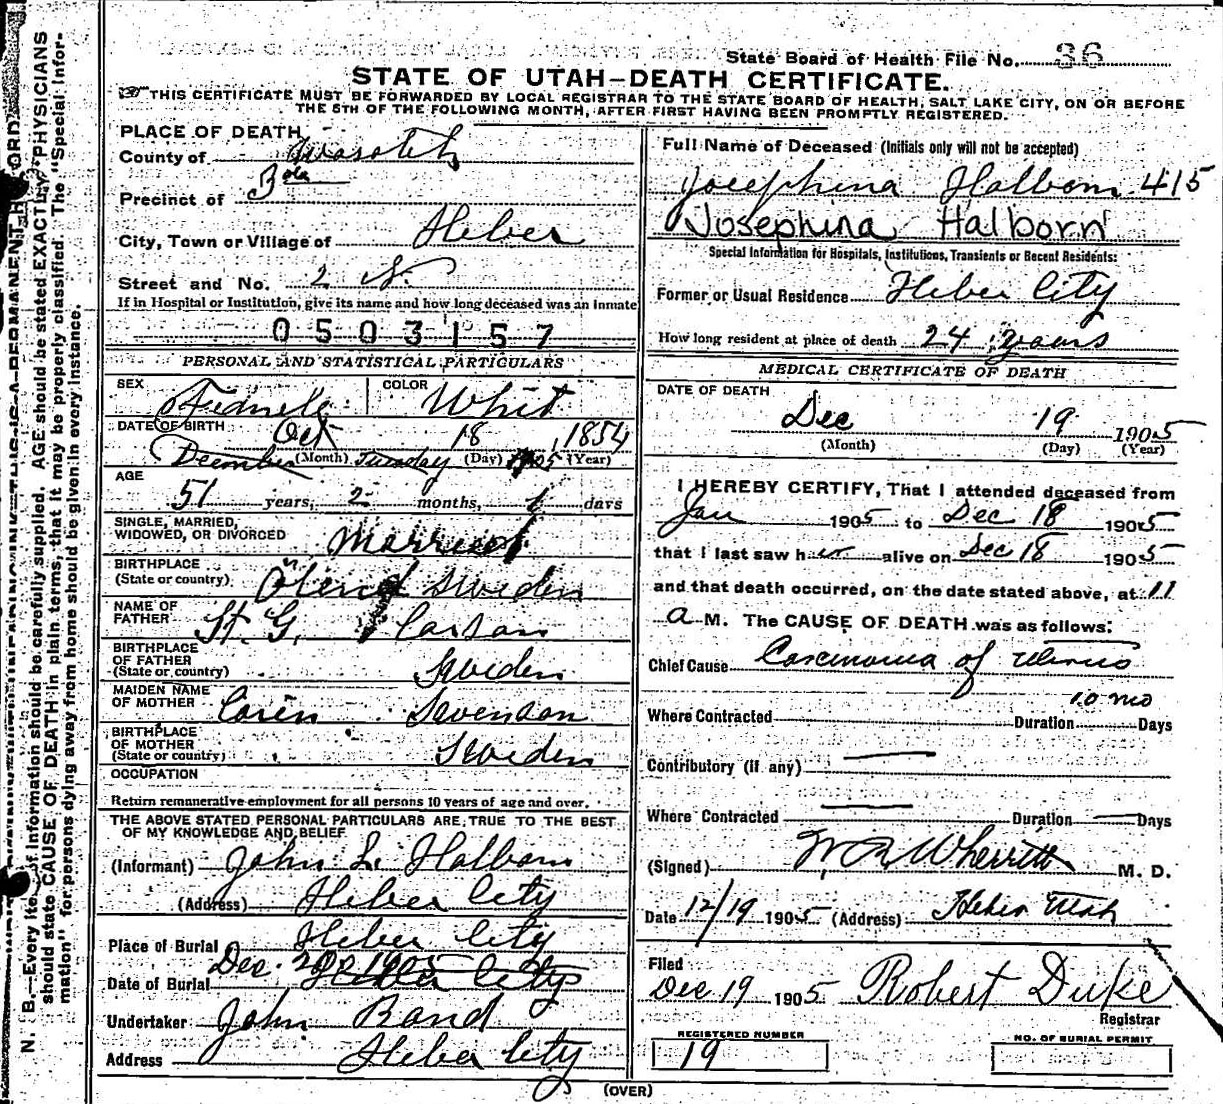 State Board of Health File No. 36
STATE OF UTAH—DEATH CERTIFICATE.
THIS CERTIFICATE MUST BE FORWARDED BY LOCAL REGISTRAR TO THE STATE BOARD OF HEALTH, SALT LAKE CITY, ON OR BEFORE
THE 5TH OF THE FOLLOWING MONTH, AFTER FIRST HAVING BEEN PROMPTLY REGISTERED.
N. B.—Every item of information should be carefully supplied. AGE should be stated EXACTLY. PHYSICIANS
should state CAUSE OF DEATH in plain terms, that it may be properly classified. The "Special Infor-
mation" for persons dying away from home should be given in every instance.
PLACE OF DEATH
County of Wasatch
Precinct of
City, Town or Village of Heber
Street and No. 2 N.
If in Hospital or Institution, give its name and how long deceased was an inmate
0503157
PERSONAL AND STATISTICAL PARTICULARS
SEX Female COLOR Whit
DATE OF BIRTH Oct 18 1854
December (Month) Tuesday (Day) 1905 (Year)
AGE
51 years, 2 months, 1 days
SINGLE, MARRIED,
WIDOWED, OR DIVORCED Married
BIRTHPLACE
(State or country) Sweden
NAME OF
FATHER St. G. Carson
BIRTHPLACE
OF FATHER
(State or country) Sweden
MAIDEN NAME
OF MOTHER Caren Swenson
BIRTHPLACE
OF MOTHER
(State or country) Sweden
OCCUPATION
Return remunerative employment for all persons 10 years of age and over.
THE ABOVE STATED PERSONAL PARTICULARS ARE TRUE TO THE BEST
OF MY KNOWLEDGE AND BELIEF
(Informant) John L. Halborn
(Address) Heber City
Place of Burial Heber City
Dec. 20 1905
Date of Burial Heber City
Undertaker John Rand
Address Heber City
Full Name of Deceased (Initials only will not be accepted)
Josephina Halborn 415
Josephina Halborn
Special Information for Hospitals, Institutions, Transients or Recent Residents:
Former or Usual Residence Heber City
How long resident at place of death 24 years
MEDICAL CERTIFICATE OF DEATH
DATE OF DEATH
Dec 19 1905
(Month) (Day) (Year)
I HEREBY CERTIFY, That I attended deceased from
Jan 1905 to Dec 18 1905
that I last saw her alive on Dec 18 1905
and that death occurred, on the date stated above, at 11
a M. The CAUSE OF DEATH was as follows:
Chief Cause Carcinoma of Uterus
10 mo
Where Contracted Duration Days
Contributory (if any)
Where Contracted Duration Days
(Signed) W R Wherritt M. D.
Date 12/19 1905 (Address) Heber Utah
Filed
Dec 19 1905 Robert Duke
Registrar
REGISTERED NUMBER
19
NO. OF BURIAL PERMIT
(OVER)